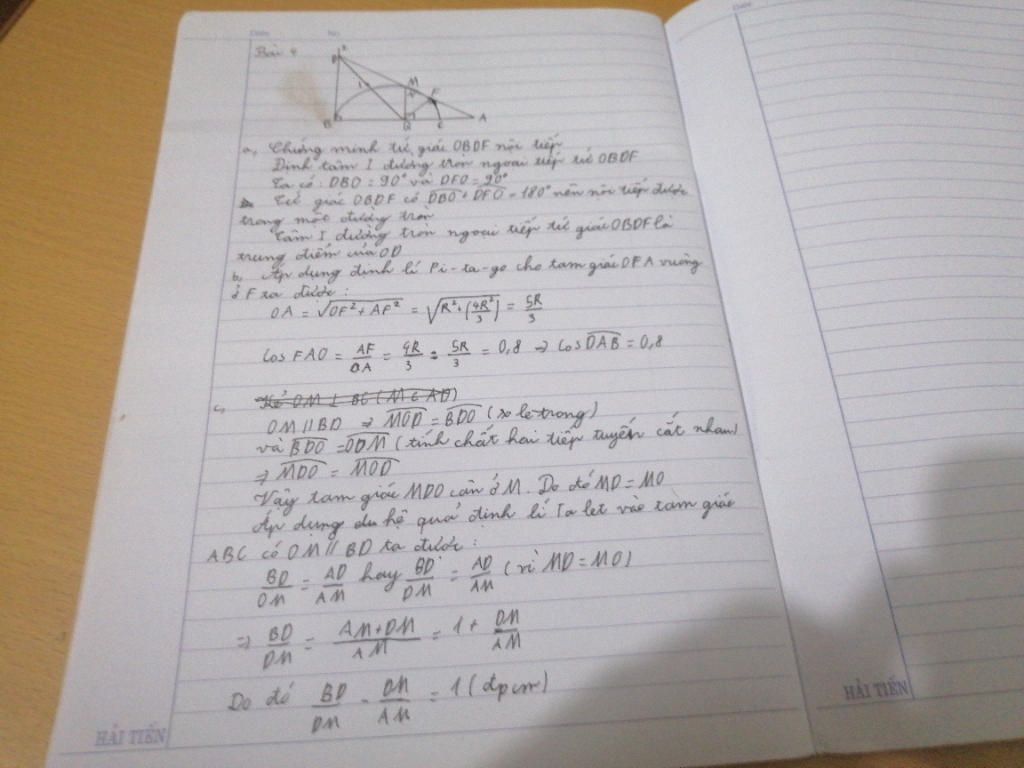 Date No.
Date
Bài 4
D
x
M
I
F
B
O
C
A
a, Chứng minh tứ giác OBDF nội tiếp
Định tâm I đường tròn ngoại tiếp tứ OBDF
Ta có: DBO = 90° và DFO = 90°
Tứ giác OBDF có DBO + DFO = 180° nên nội tiếp được
trong một đường tròn
Tâm I đường tròn ngoại tiếp tứ giác OBDF là
trung điểm của OD
b, Áp dụng định lí Pi-ta-go cho tam giác OFA vuông
ở F ta được:
OA = √(OF² + AF²) = √(R² + (4R²/3)) = 5R/3
Cos FAO = AF/OA = 4R/3 : 5R/3 = 0,8 ⇒ Cos DAB = 0,8
c, Kẻ OM ⊥ BC (M ∈ AD)
OM // BD ⇒ MOD = BDO (so le trong)
và BDO = ODM (tính chất hai tiếp tuyến cắt nhau)
⇒ MDO = MOD
Vậy tam giác MDO cân ở M. Do đó MD = MO
Áp dụng du hệ quả định lí Ta let vào tam giác
ABC có OM // BD ta được:
BD/OM = AD/AM hay BD/DM = AD/AM (vì MD = MO)
⇒ BD/DM = AM+DM/AM = 1 + DM/AM
Do đó BD/DM - DM/AM = 1 (đpcm)
HẢI TIẾN
HẢI TIẾN